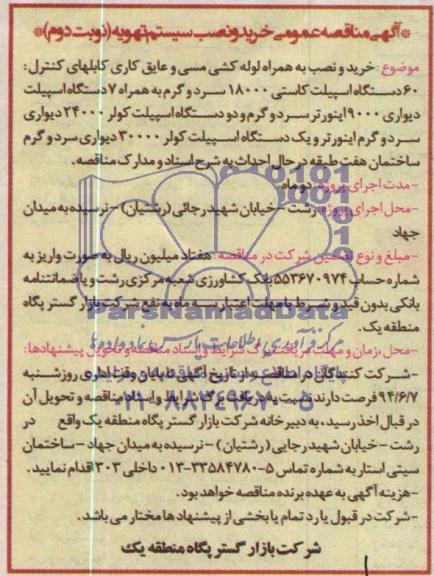 *آگهی مناقصه عمومی خرید و نصب سیستم تهویه (نوبت دوم)*
موضوع: خرید و نصب به همراه لوله کشی مسی و عایق کاری کابلهای کنترل:
۶۰ دستگاه اسپیلت کاستی ۱۸۰۰۰ سرد و گرم به همراه ۷ دستگاه اسپیلت
دیواری ۹۰۰۰ اینورتر سرد و گرم و دو دستگاه اسپیلت کولر ۲۴۰۰۰ دیواری
سرد و گرم اینورتر و یک دستگاه اسپیلت کولر ۳۰۰۰۰ دیواری سرد و گرم
ساختمان هفت طبقه در حال احداث به شرح اسناد و مدارک مناقصه.
-مدت اجرای پروژه: دو ماه
-محل اجرای پروژه: رشت -خیابان شهید رجائی (رشتیان) -نرسیده به میدان
جهاد
-مبلغ و نوع تضمین شرکت در مناقصه: هفتاد میلیون ریال به صورت واریز به
شماره حساب ۵۵۳۶۷۰۹۷۴ بانک کشاورزی شعبه مرکزی رشت و یا ضمانتنامه
بانکی بدون قید و شرط با مهلت اعتبار سه ماه به نفع شرکت بازار گستر پگاه
منطقه یک.
ParsNamadData
مرکز فرآوری اطلاعات پارس نماد داده ها
-محل، زمان و مهلت دریافت برگ شرایط و اسناد مناقصه و تحویل پیشنهادها:
-شرکت کنندگان در مناقصه از تاریخ آگهی تا پایان وقت اداری روز شنبه
۹۴/۶/۷ فرصت دارند نسبت به دریافت برگ شرایط و اسناد مناقصه و تحویل آن
۰۲۱-۸۸۳۴۹۶۷۰-۵
در قبال اخذ رسید، به دبیرخانه شرکت بازار گستر پگاه منطقه یک واقع در
رشت -خیابان شهید رجایی (رشتیان) -نرسیده به میدان جهاد -ساختمان
سیتی استار به شماره تماس ۵-۳۳۵۸۴۷۸۰-۰۱۳ داخلی ۳۰۳ اقدام نمایید.
-هزینه آگهی به عهده برنده مناقصه خواهد بود.
-شرکت در قبول یا رد تمام یا بخشی از پیشنهادها مختار می باشد.
شرکت بازار گستر پگاه منطقه یک